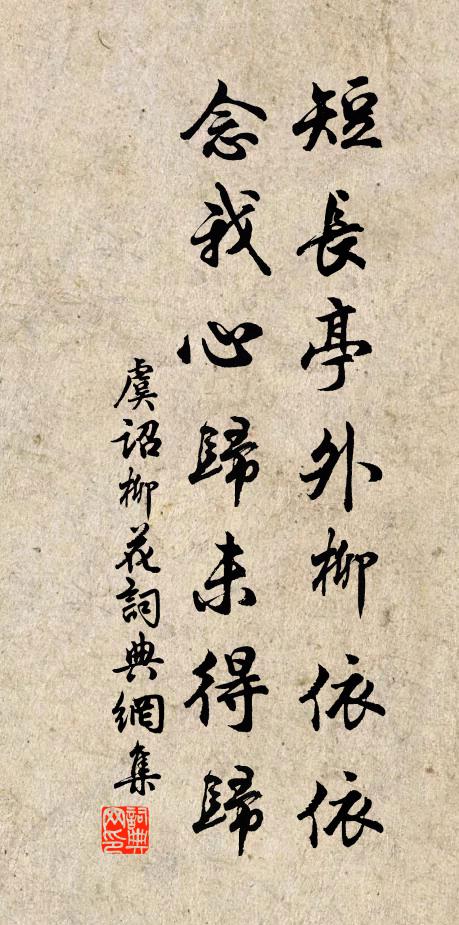 短長亭外柳依依
念我心歸未得歸
虞詔柳花詞典網集
詞典網印